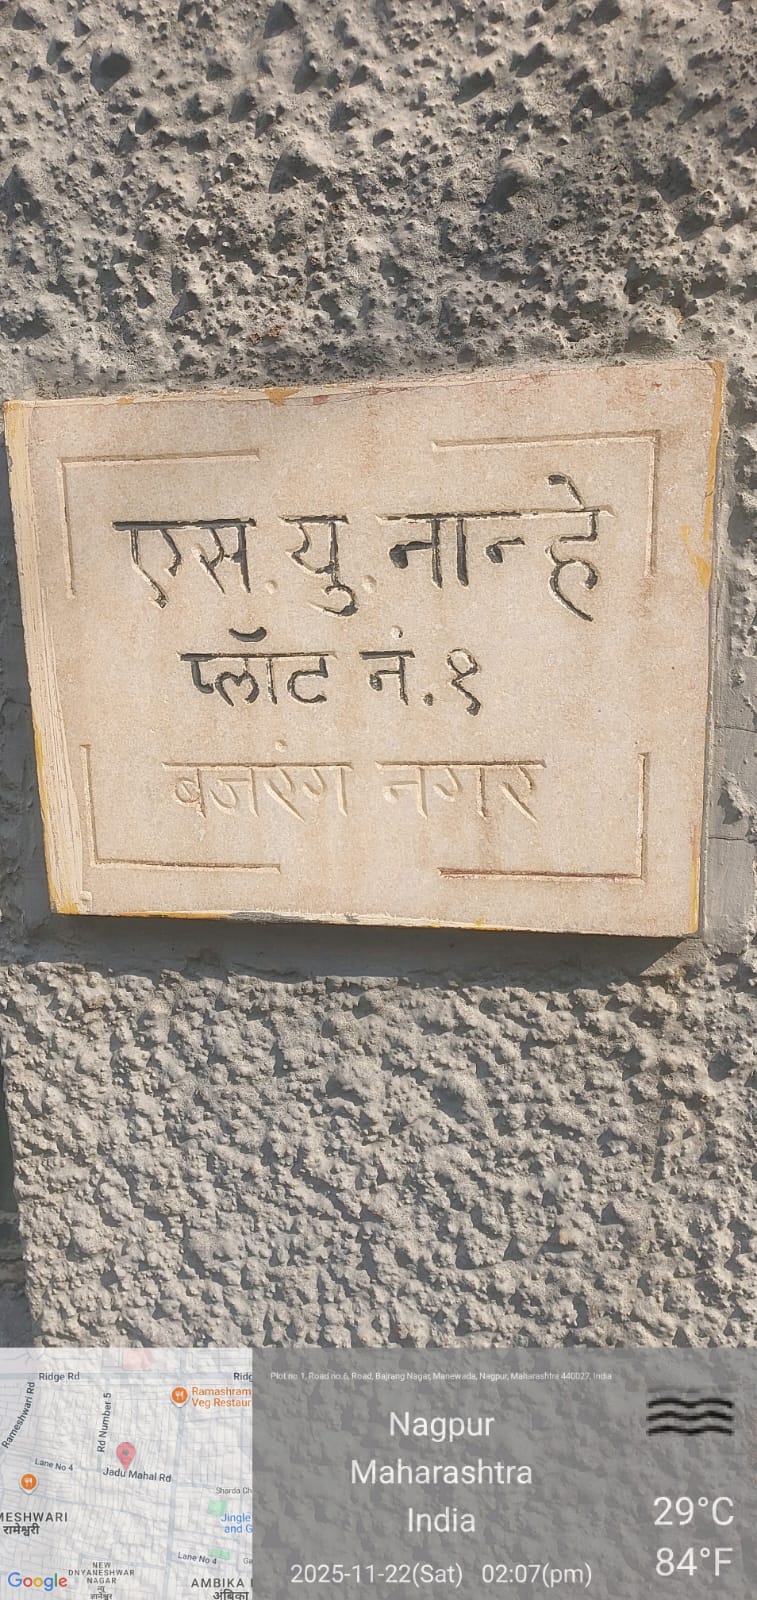 एस. यु. नान्हे
प्लॉट नं. १
बजरंग नगर
Ridge Rd
Ridg
Rameshwari Rd
Rd Number 5
Ramashram
Veg Restaur
Lane No 4
Jadu Mahal Rd
Sharda Ch
MESHWARI
रामेश्वरी
Jingle
and G
Lane No 4
Ga
NEW
DNYANESHWAR
NAGAR
न्यू
ज्ञानेश्वर
AMBIKA
अंबिका
Google
Plot no 1, Road no.6, Road, Bajrang Nagar, Manewada, Nagpur, Maharashtra 440027, India
Nagpur
Maharashtra
India
2025-11-22(Sat) 02:07(pm)
29°C
84°F